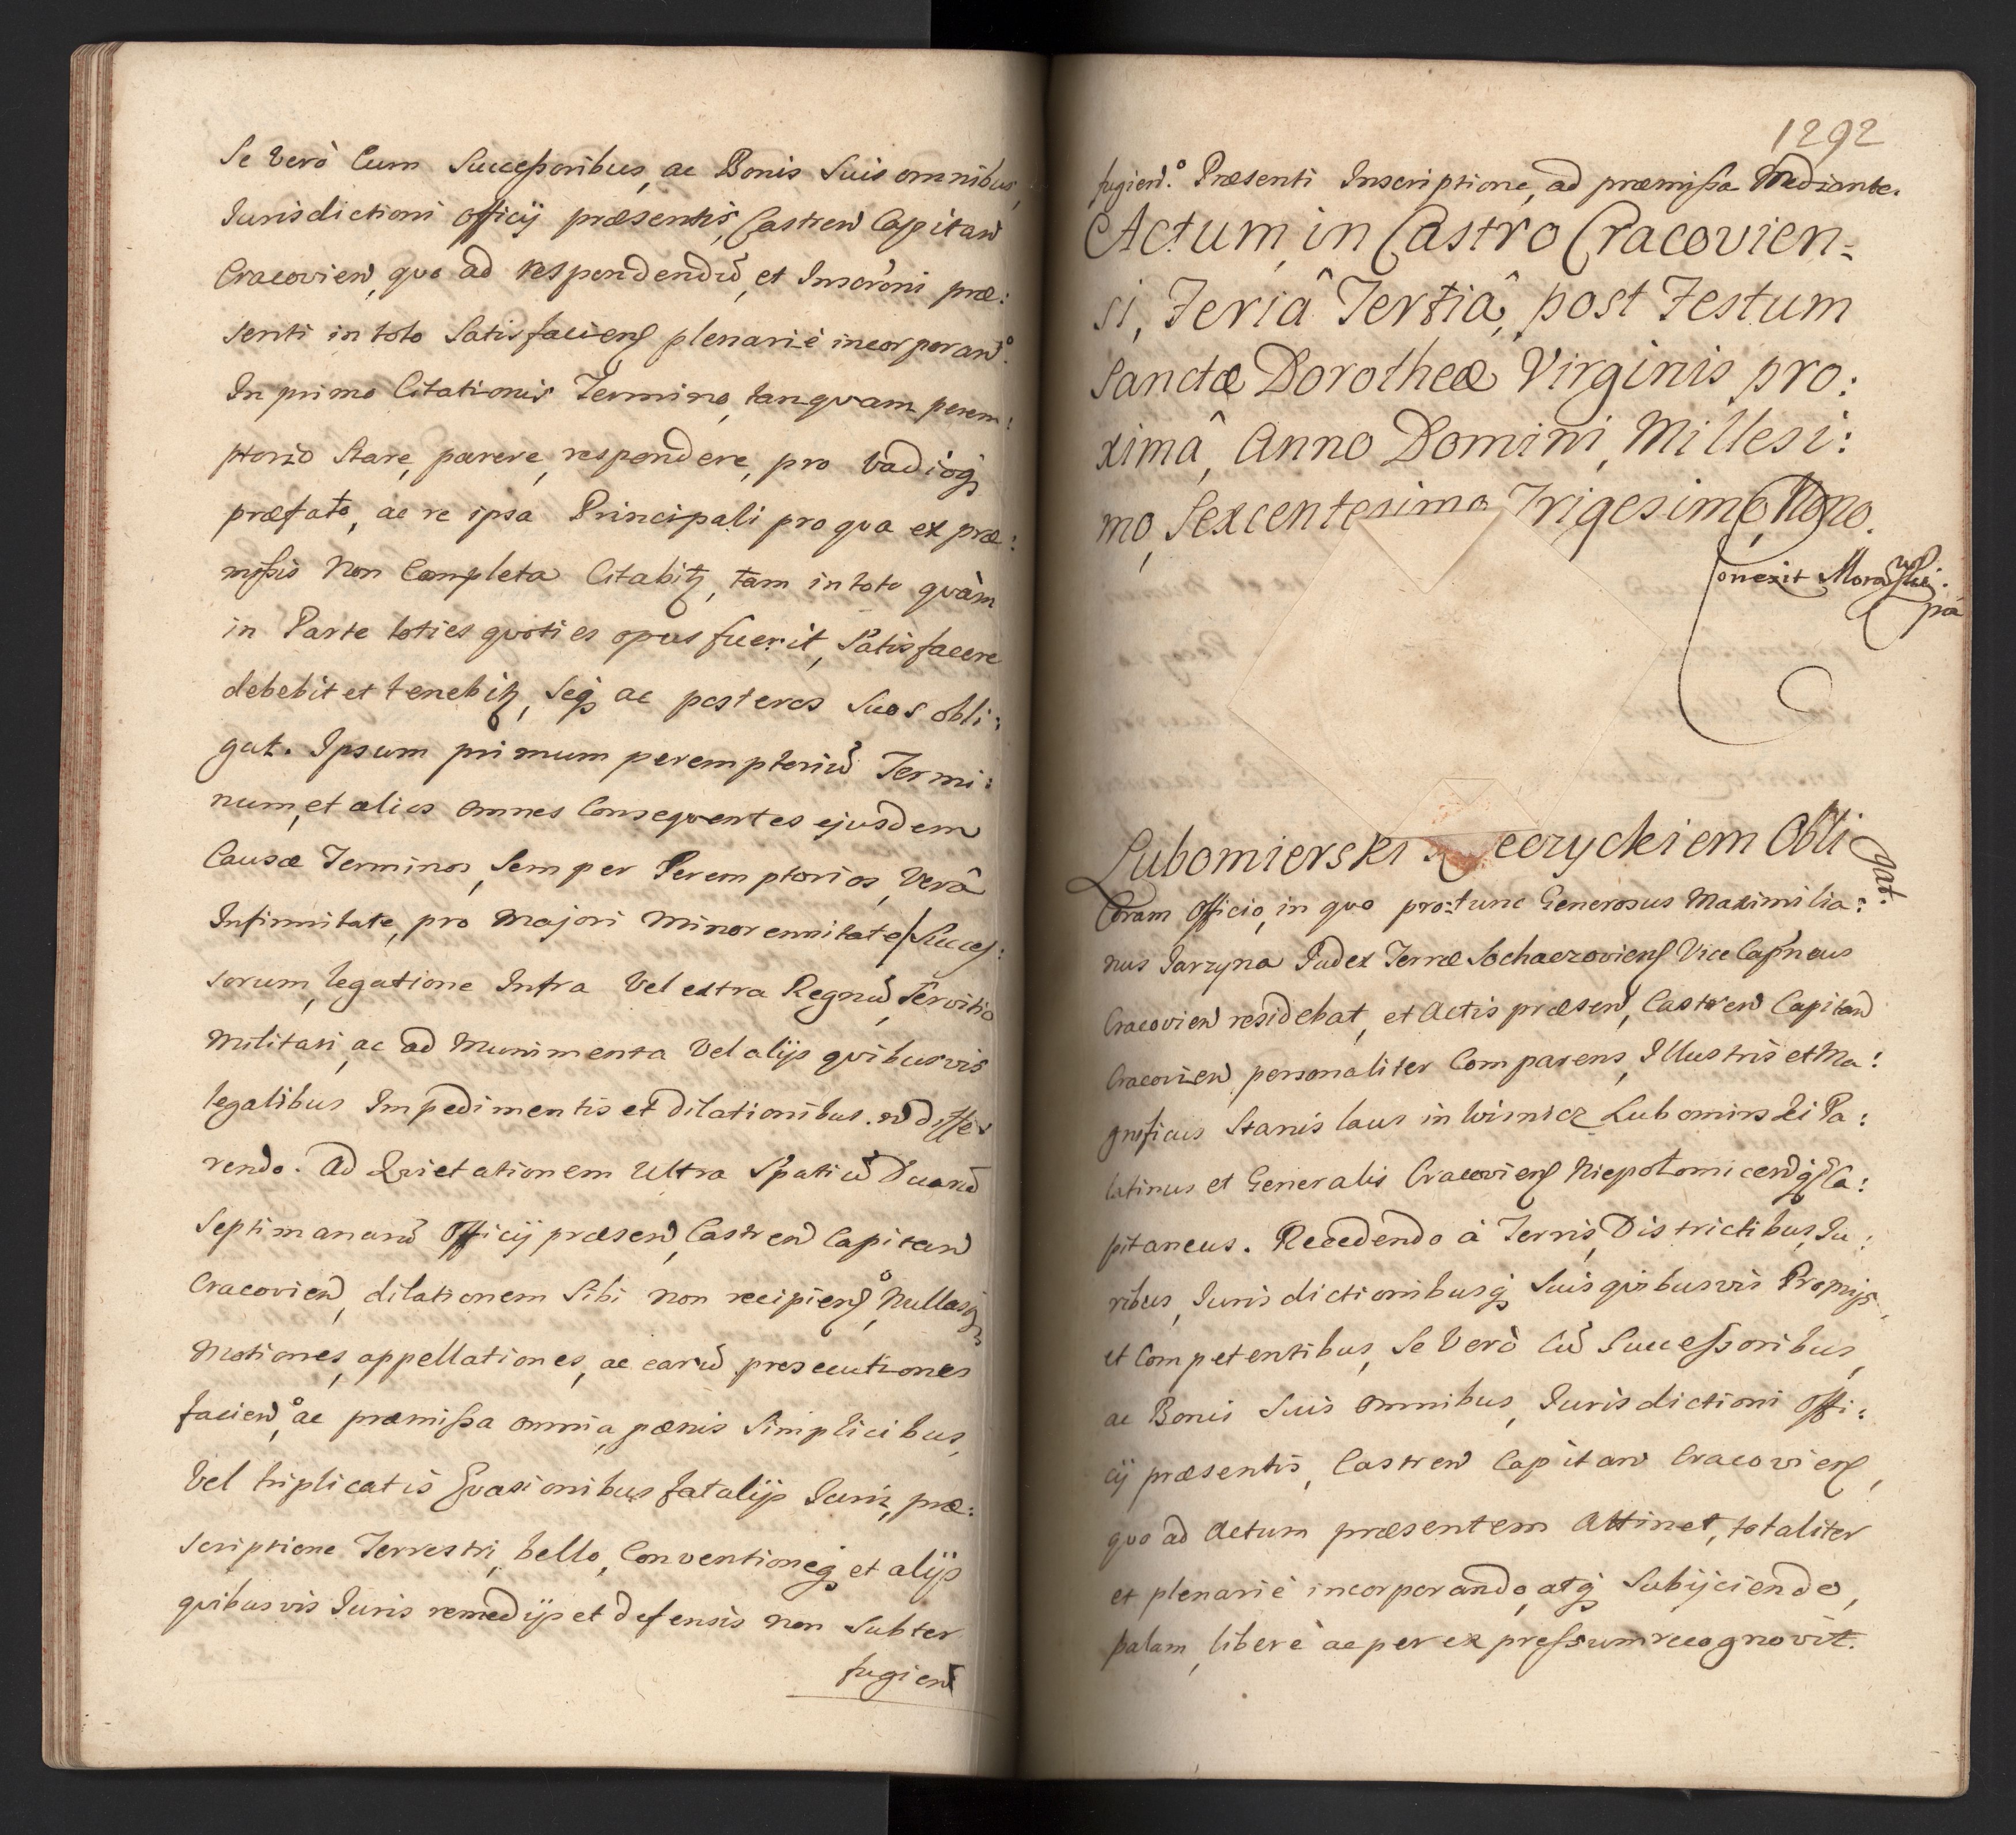 Se verò Cum Successoribus, ac Bonis Suis omnibus,
Iurisdictioni officij præsentis, Castren̄ Capitan̄
Cracovien̄, quo ad respondendū, et Inscr̄oni præ:
senti in toto Satisfacien̄ plenariè incorporan̄º.
In primo Citationis Termino, tanquam perem:
ptorio Stare, parere, respondere, pro vadioq
præfato, ac re ipsa Principali pro qua ex præ:
missis Non Completa Citabitꝫ, tam in toto quàm
in Parte toties quoties opus fuerit, Satisfacere
debebit et tenebitꝫ, Seq ac posteros Suos obli:
gat. Ipsum primum peremptoriū Termi:
num, et alios omnes Consequentes ejusdem
Causæ Terminos, Semper Peremptorios, Verâ
Infirmitate, pro Majori Minorennitate Succes:
sorum, legatione Infra Vel extra Regnū, Servitio
Militari, ac ad Munimenta Vel alijs quibusvis
legalibus Impedimentis et dilationibus. n̄ diffe:
rendo. Ad Quietationem Ultra Spatiū Duarū
Septimanarū Officij præsen̄, Castren̄ Capitan̄
Cracovien̄, dilationem Sibi non recipien̄º, Nullasq
Motiones, appellationes, ac earū prosecutiones
facien̄º, ac præmissa omnia, pœnis Simplicibus,
Vel triplicatis Evasionibus fatalijs Iuris, præ:
scriptione Terrestri, bello, Conventioneq et alijs
quibusvis Iuris remedijs et defensis non Subter
fugien̄
1292
fugien̄º. Præsenti Inscriptione, ad præmissa Mediante.
Actum in Castro Cracovien=
si, Feriâ Tertiâ, post Festum
Sanctæ Dorotheæ Virginis pro:
ximâ, Anno Domini, Millesi:
mo, Sexcentesimo Trigesimo, Nono.
Conexit Morawski.
Lubomierski eczyckiem Obli
gat.
Coram Officio, in quo pro=tunc Generosus Maximilia:
nus Jarzyna Judex Terræ Sochaczovien̄ Vice Capn̄eus
Cracovien̄ residebat, et Actis præsen̄, Castren̄ Capitan̄
Cracovien̄ personaliter Comparens, Illustris et Ma:
gnificus Stanislaus in Wisnicz Lubomirski Pa:
latinus et Generalis Cracovien̄ Niepolomicen̄q Ca:
pitaneus. Recedendo à Terris, Districtibus, Iu:
ribus, Iurisdictionibusq Suis quibusvis Proprijs,
et Competentibus, Se Verò Cū Successoribus,
ac Bonis Suis omnibus, Iurisdictioni Offi:
cij præsentis, Castren̄ Capitan̄ Cracovien̄,
quo ad Actum præsentem Attinet, totaliter
et plenariè incorporando, atq Subijciendo,
palam, liberè ac per expressum recognovit.